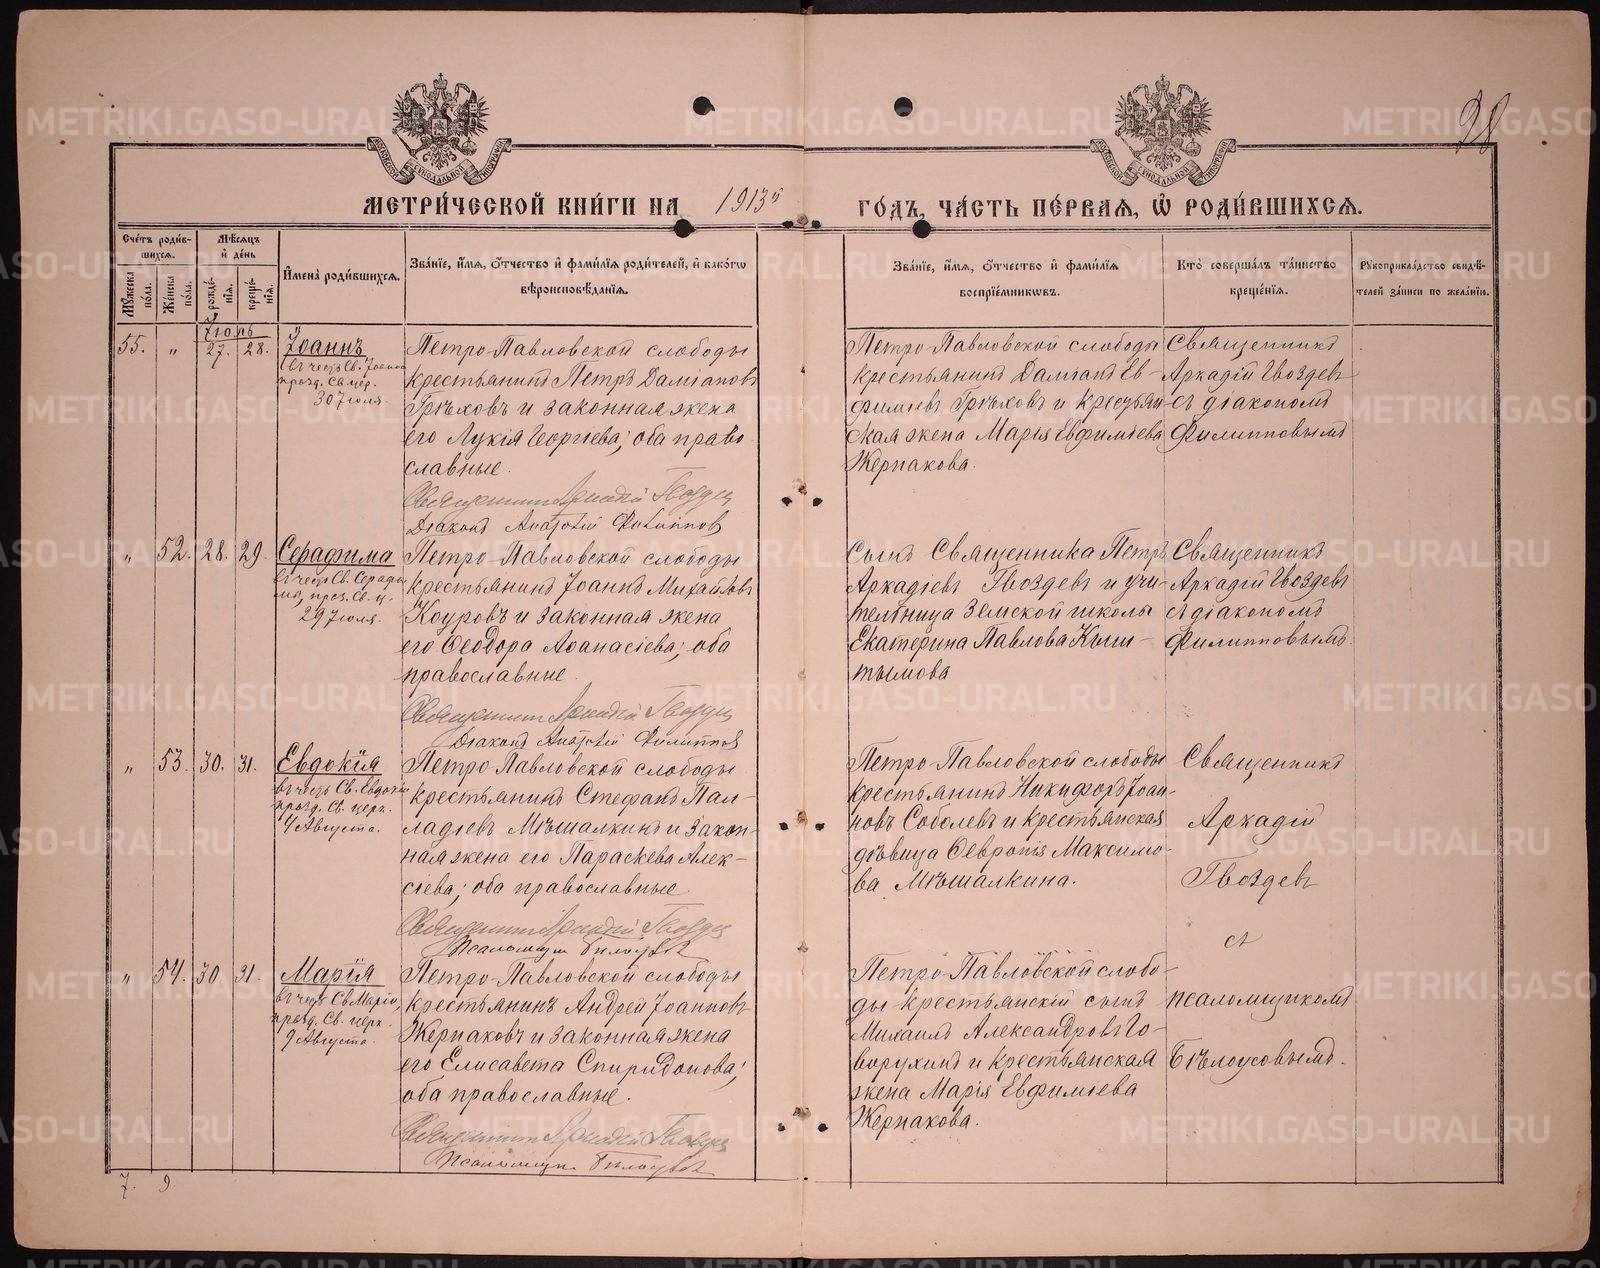 98
МОСКОВСКОЙ СѴНОДАЛЬНОЙ ТИПОГРАФІИ
МОСКОВСКОЙ СѴНОДАЛЬНОЙ ТИПОГРАФІИ
МЕТРИ́ЧЕСКОЙ КНИ́ГИ НА 1913й ГО́ДЪ, ЧА́СТЬ ПЕ́РВАѦ, Ѡ҆ РОДИ́ВШИХСѦ.
Сче́тъ роди́в-
шихсѧ.
Мꙋ́жеска по́ла.
Же́нска по́ла.
Мѣ́сѧцъ и҆ де́нь
рожде́-
нїѧ.
креще́-
нїѧ.
И҆мена̀ роди́вшихсѧ.
Зва́нїе, и҆́мѧ, ѻ҆́тчество и҆ фамилїѧ роди́телей, и҆ како́гѡ
вѣроисповѣ́данїѧ.
Зва́нїе, и҆́мѧ, ѻ҆́тчество и҆ фами́лїѧ
воспрїе́мникѡвъ.
Кто̀ соверша́лъ та́инство
креще́нїѧ.
Рꙋкоприкла́дство свидѣ́-
телей за́писи по жела́нїю.
Іюль
55. " 27. 28. Іоаннъ
въ честь Св. Іоанна
празд. Св. цер.
30 Іюля.
Петро-Павловской слободы
крестьянинъ Петръ Даміановъ
Грѣховъ и законная жена
его Лукія Георгіева; оба право
славные.
Священникъ Аркадій Гвоздевъ
Діаконъ Анатолій Филипповъ
Петро-Павловской слободы
крестьянинъ Даміанъ Ев-
фиміевъ Грѣховъ и крестьян-
ская жена Марія Евфиміева
Жернакова.
Священникъ
Аркадій Гвоздевъ
съ діакономъ
Филипповымъ
" 52. 28. 29. Серафима
въ честь Св. Серафи
мы, праз. Св. ц.
29 Іюля.
Петро-Павловской слободы
крестьянинъ Іоаннъ Михайловъ
Коуровъ и законная жена
его Ѳеодора Аѳанасіева; оба
православные.
Священникъ Аркадій Гвоздевъ
Діаконъ Анатолій Филипповъ
Сынъ Священника Петръ
Аркадіевъ Гвоздевъ и учи-
тельница Земской школы
Екатерина Павлова Кыш-
тымова
Священникъ
Аркадій Гвоздевъ
съ діакономъ
Филипповымъ.
" 53. 30. 31. Евдокія
въ честь Св. Евдокіи
празд. Св. церк.
4 Августа.
Петро Павловской слободы
крестьянинъ Стефанъ Пал-
ладіевъ Мѣшалкинъ и закон-
ная жена его Параскева Алек-
сіева; оба православные.
Священникъ Аркадій Гвоздевъ
Псаломщикъ Бѣлоусовъ
Петро-Павловской слободы
крестьянинъ Никифоръ Іоан-
новъ Соболевъ и крестьянская
дѣвица Ѳевронія Максимо-
ва Мѣшалкина.
Священникъ
Аркадій
Гвоздевъ
съ
псаломщикомъ
Бѣлоусовымъ.
" 54. 30 31. Марія
въ честь Св. Маріи,
празд. Св. церк.
9 Августа.
Петро-Павловской слободы
крестьянинъ Андрей Іоанновъ
Жернаковъ и законная жена
его Елисавета Спиридонова;
оба православные.
Священникъ Аркадій Гвоздевъ
Псаломщикъ Бѣлоусовъ
Петро-Павловской слобо-
ды крестьянскій сынъ
Михаилъ Александровъ Го-
ворухинъ и крестьянская
жена Марія Евфиміева
Жернакова.
7. 9
METRIKI.GASO-URAL.RU